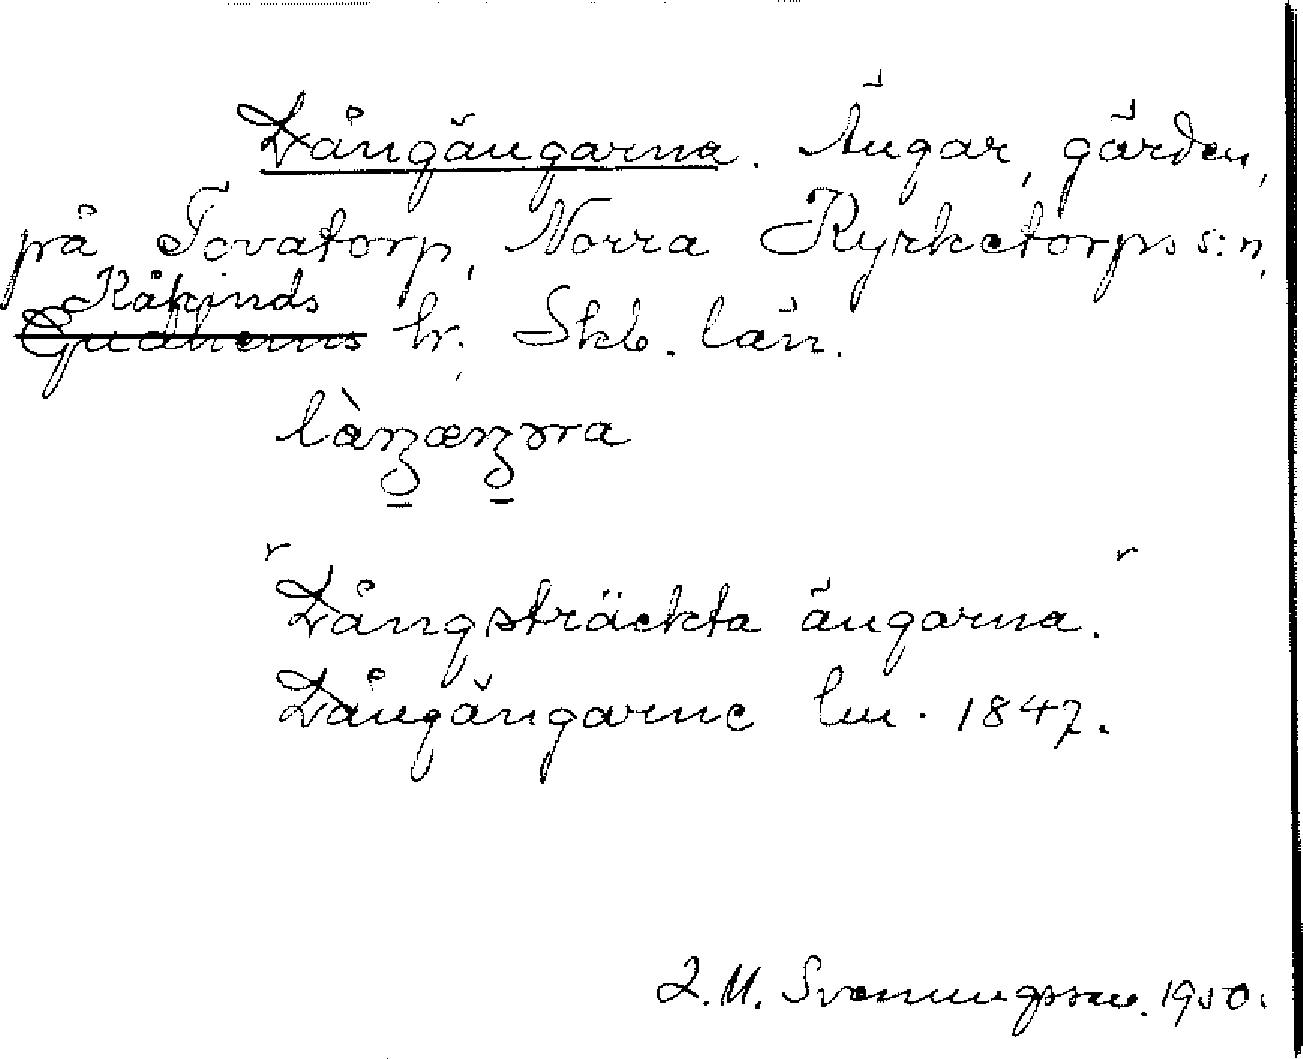 Långängarna. Ängar, gärden,
på Tovatorp, Norra Kyrketorps s:n,
Kåkinds
Gudhems hr. Skb. län.
làŋæŋɔra
"Långsträckta ängarna."
Långängarne lm. 1847.
L.M. Svenungsson. 1950.